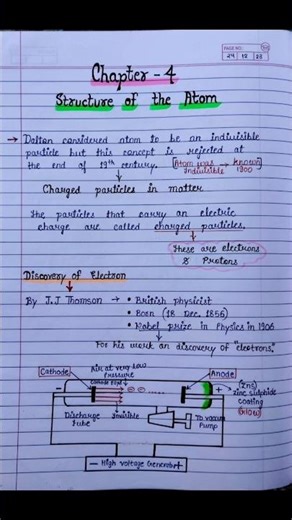 PAGE NO.
DATE 24 12 23
Chapter - 4
Structure of the Atom
→ Dalton considered atom to be an indivisible
particle but this concept is rejected at
the end of 19th century. [Atom was indivisible → known 1900]
↓
Charged particles in matter
The particles that carry an electric
charge are called charged particles.
↓
These are electrons
& Protons
Discovery of Electron
By J.J Thomson → • British physicist
• Born (18 Dec. 1856)
• Nobel prize in Physics in 1906
↓
For his work on discovery of "electrons."
Cathode
Air at very low
pressure
Cathode Rays
Anode
- + (ZnS)
zinc sulphide
coating
(Glow)
Discharge
tube
Invisible
To vacuum
Pump
- High voltage Generator +